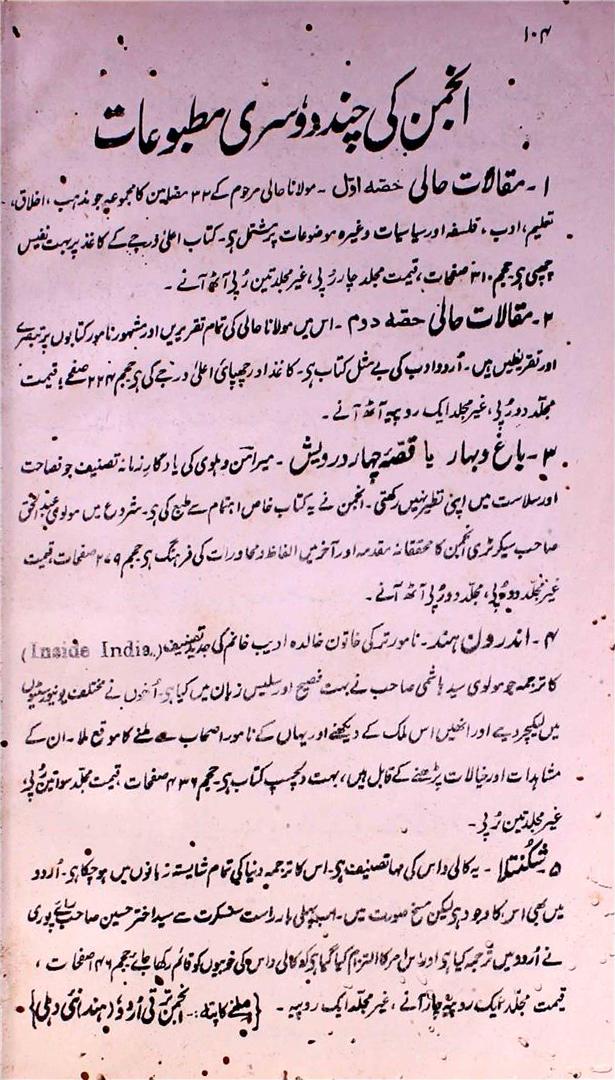 ۱۰۴
انجمن کی چند دوسری مطبوعات
۱۔ مقالات حالی حصہ اول ۔ مولانا حالی مرحوم کے ۳۲ مضامین کا مجموعہ جو مذہب، اخلاق،
تعلیم، ادب، فلسفہ اور سیاسیات وغیرہ موضوعات پر مشتمل ہی۔ کتاب اعلیٰ درجے کے کاغذ پر بہت نفیس
چھپی ہی حجم ۳۱۰ صفحات، قیمت مجلد چار رُپی، غیر مجلد تین رُپی آٹھ آنے ۔
۲۔ مقالات حالی حصہ دوم ۔ اس میں مولانا حالی کی تمام تقریریں اور مشہور نامور کتابوں پر تبصرے
اور تقریظیں ہیں۔ اُردو ادب کی بے مثل کتاب ہی۔ کاغذ اور چھپائی اعلیٰ درجے کی ہی حجم ۲۲۴ صفحے، قیمت
مجلّد دو رُپی، غیر مجلد ایک روپیہ آٹھ آنے ۔
۳۔ باغ و بہار یا قصۂ چہار درویش ۔ میر امن دہلوی کی یادگارِ زمانہ تصنیف جو فصاحت
اور سلاست میں اپنی نظیر نہیں رکھتی ۔ انجمن نے یہ کتاب خاص اہتمام سے طبع کی ہی۔ شروع میں مولوی عبدالحق
صاحب سیکرٹری انجمن کا محققانہ مقدمہ اور آخر میں الفاظ و محاورات کی فرہنگ ہی حجم ۲۷۹ صفحات، قیمت
غیر مجلّد دو رُپی، مجلّد دو رُپی آٹھ آنے ۔
۴۔ اندرون ہند ۔ نامور ترکی خاتون خالدہ ادیب خانم کی جدید تصنیف (Inside India.)
کا ترجمہ جو مولوی سید ہاشمی صاحب نے بہت فصیح اور سلیس زبان میں کیا ہی۔ اُنھوں نے مختلف یونیورسٹیوں
میں لیکچر دیے اور انھیں اس ملک کے دیکھنے اور یہاں کے نامور اصحاب سے ملنے کا موقع ملا۔ ان کے
مشاہدات اور خیالات پڑھنے کے قابل ہیں، بہت دلچسپ کتاب ہی۔ حجم ۴۳۶ صفحات، قیمت مجلّد سوا تین رُپی،
غیر مجلد تین رُپی ۔
۵ شکُنتلا ۔ یہ کالی داس کی مہا تصنیف ہی۔ اس کا ترجمہ دنیا کی تمام شایستہ زبانوں میں ہو چکا ہی۔ اُردو
میں بھی اس کا وجود ہی لیکن مسخ صورت میں۔ اب پہلی بار راست سنسکرت سے سید اختر حسین صاحب رائے پوری
نے اُردو میں ترجمہ کیا ہی اور اس امر کا التزام کیا گیا ہی کہ کالی داس کی خوبیوں کو قائم رکھا جائے حجم ۴۶ صفحات ،
قیمت مجلّد ایک روپیہ چار آنے ، غیر مجلّد ایک روپیہ ۔ {ملنے کا پتہ:۔ انجمن ترقی اُردو (ہند) نئی دہلی}